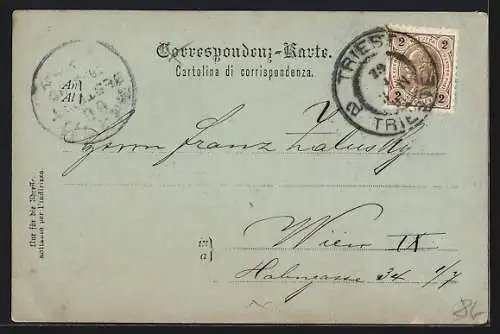 Correspondenz-Karte.
Cartolina di corrispondenza.
An
Al
TRIEST
TRIESTE
2
2 2
Herrn Franz Zalusky
in
a
Wien IX
Hahngasse 34 1/7
Nur für die Adresse.
soltanto per l'indirizzo.
86